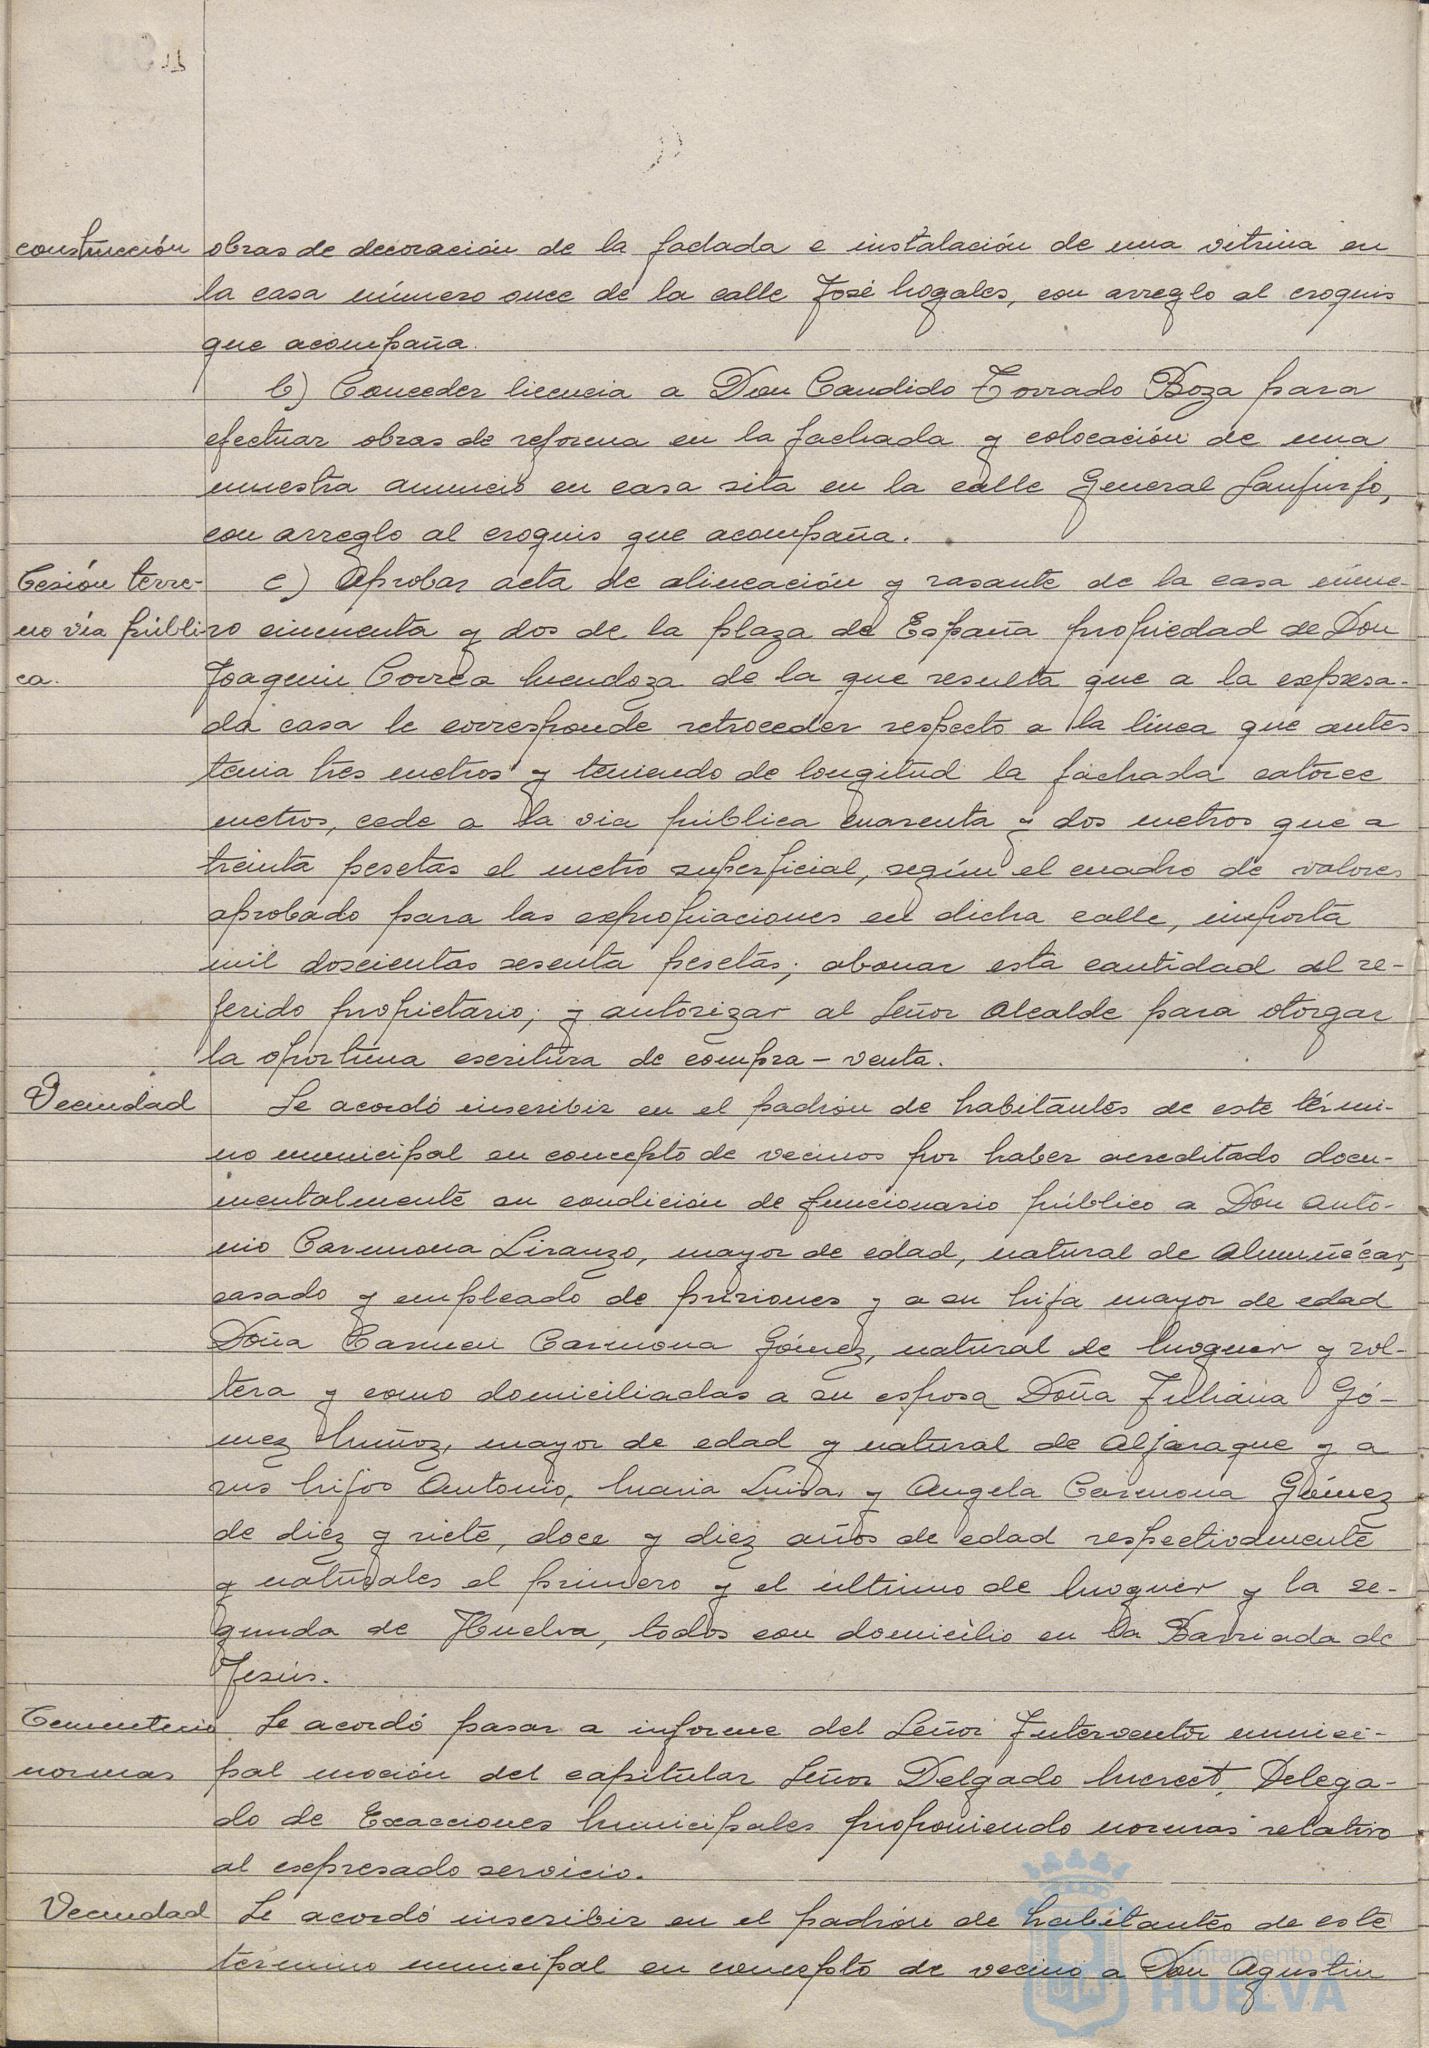 construcción obras de decoración de la fachada e instalación de una vitrina en
la casa número once de la calle José Nogales, con arreglo al croquis
que acompaña.
b) Conceder licencia a Don Candido Torrado Boza para
efectuar obras de reforma en la fachada y colocación de una
muestra anuncio en casa sita en la calle General Sanjurjo,
con arreglo al croquis que acompaña.
Cesión terre- c) Aprobar acta de alineación y rasante de la casa núme-
no vía públi- ro cincuenta y dos de la plaza de España propiedad de Don
ca. Joaquin Correa Mendoza de la que resulta que a la expresa-
da casa le corresponde retroceder respecto a la línea que antes
tenia tres metros y teniendo de longitud la fachada catorce
metros, cede a la via pública cuarenta y dos metros que a
treinta pesetas el metro superficial, según el cuadro de valores
aprobado para las expropiaciones en dicha calle, importa
mil doscientas sesenta pesetas; abonar esta cantidad al re-
ferido propietario; y autorizar al Señor Alcalde para otorgar
la oportuna escritura de compra-venta.
Vecindad Se acordó inscribir en el padrón de habitantes de este térmi-
no municipal en concepto de vecinos por haber acreditado docu-
mentalmente su condición de funcionario público a Don Anto-
nio Carmona Liranzo, mayor de edad, natural de Almuñécar,
casado y empleado de prisiones y a su hija mayor de edad
Doña Carmen Carmona Gómez, natural de Moguer y sol-
tera y como domiciliadas a su esposa Doña Juliana Gó-
mez Muñoz, mayor de edad y natural de Aljaraque y a
sus hijos Antonio, Maria Luisa y Angela Carmona Gómez
de diez y siete, doce y diez años de edad respectivamente
y naturales el primero y el último de Moguer y la se-
gunda de Huelva, todos con domicilio en la Barriada de
Jesús.
Cementerio Se acordó pasar a informe del Señor Interventor munici-
normas pal moción del capitular Señor Delgado Delega-
do de Exacciones Municipales proponiendo normas relativo
al expresado servicio.
Vecindad Se acordó inscribir en el padrón de habitantes de este
término municipal en concepto de vecino a Don Agustin
Ayuntamiento de
HUELVA